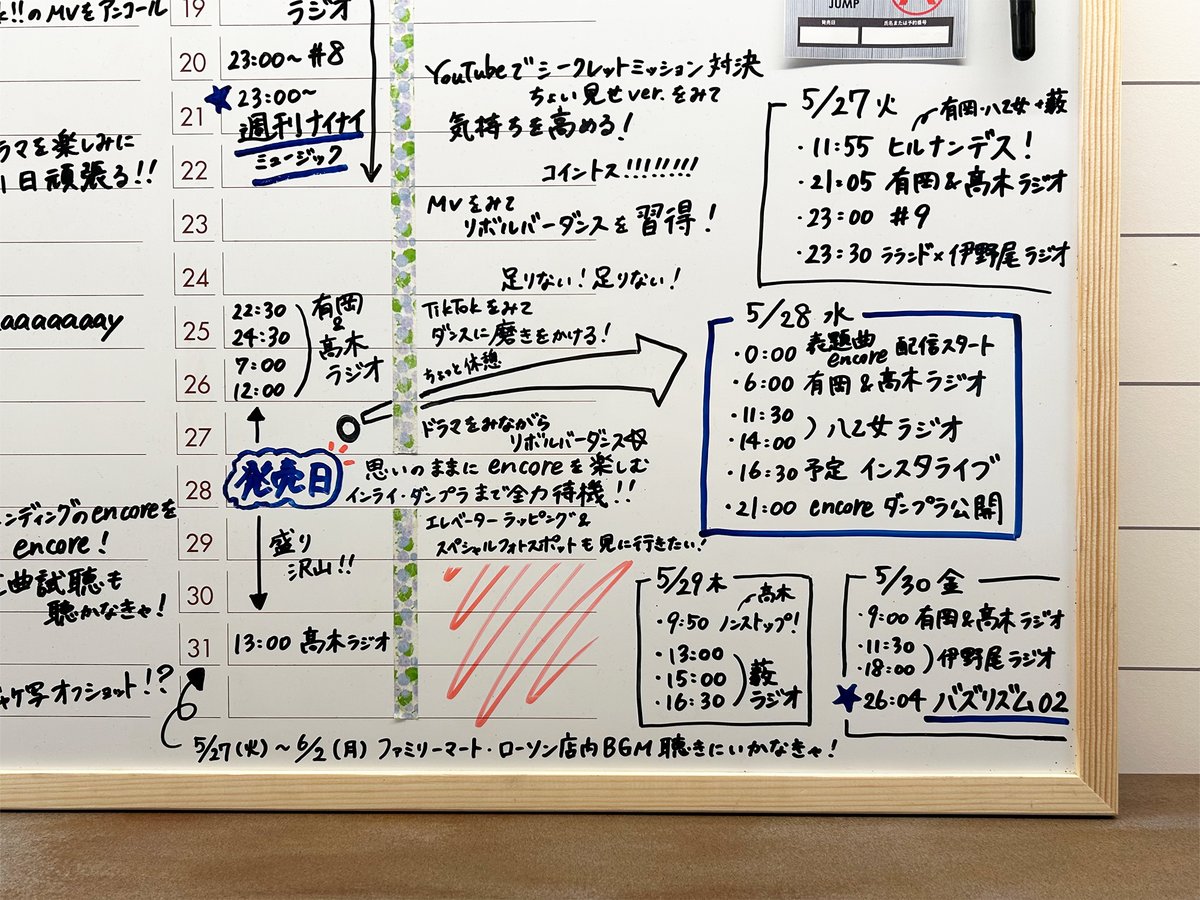 k!!のMVをアンコール
ラマを楽しみに
1日頑張る!!
aaaaaaay
ンディングのencoreを
encore!
曲試聴も
聴かなきゃ!
ャケ写オフショット!?
19 ラジオ
20 23:00〜 #8
21 ★23:00〜
週刊ナイナイ
ミュージック
22
23
24
25
22:30
24:30
26
7:00
12:00
有岡
&
髙木
ラジオ
27
28 発売日
29 盛り
沢山!!
30
31 13:00 髙木ラジオ
YouTubeでシークレットミッション対決
ちょい見せver.をみて
気持ちを高める!
コイントス!!!!!!!!
MVをみて
リボルバーダンスを習得!
足りない!足りない!
TikTokをみて
ダンスに磨きをかける!
ちょっと休憩
ドラマをみながら
リボルバーダンス
思いのままにencoreを楽しむ
インライ・ダンプラまで全力待機!!
エレベーターラッピング&
スペシャルフォトスポットも見に行きたい!
JUMP
発売日
氏名または予約番号
5/27 火
有岡・八乙女+薮
・11:55 ヒルナンデス!
・21:05 有岡&髙木ラジオ
・23:00 #9
・23:30 ラランド×伊野尾ラジオ
5/28 水
・0:00 表題曲encore 配信スタート
・6:00 有岡&髙木ラジオ
・11:30
・14:00 )八乙女ラジオ
・16:30予定 インスタライブ
・21:00 encoreダンプラ公開
5/29 木
髙木
・9:50 ノンストップ!
・13:00
・15:00
・16:30
)薮
ラジオ
5/30 金
・9:00 有岡&髙木ラジオ
・11:30
・18:00 )伊野尾ラジオ
★26:04 バズリズム02
5/27(火)〜6/2(月)ファミリーマート・ローソン店内BGM聴きにいかなきゃ!